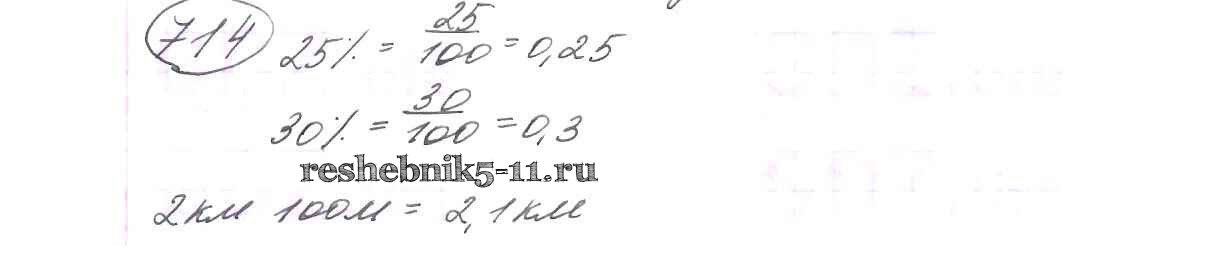 714 25% = 25/100 = 0,25
30% = 30/100 = 0,3
reshebnik5-11.ru
2км 100м = 2,1км